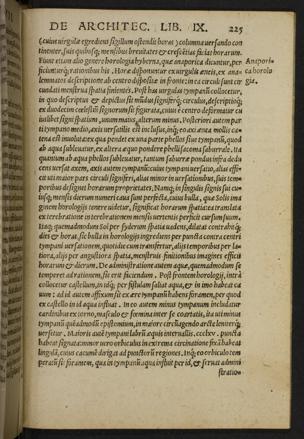 DE ARCHITEC. LIB. IX. 225
(cuius virgulæ egrediens sigillum ostendit horas) columna uersando con
tinenter, suis quibusq; mensibus breuitates & crescētias faciat horarum.
Fiunt etiam alio genere horologia hyberna, quæ anaporica dicuntur, per
Anapori
ca horolo
gia.
ficiunturq; rationibus his. Horæ disponuntur ex uirgulis æneis, ex ana
lemmatos descriptione ab centro dispositæ in fronte: in ea circuli sunt cir
cundati menstrua spatia finientes. Post has uirgulas tympanū collocetur,
in quo descriptus & depictus sit mūdus signiferq; circulus, descriptioq;
ex duodecim cœlestiū signorum sit figurata, cuius è centro deformatur cu
iuslibet signi spatium, unum maius, alterum minus. Posteriori autem par
ti tympano medio, axis uersatilis est inclusus, inq; eo axi ænea mollis ca
tena est inuoluta: ex qua pendet ex una parte phellos siue tympanū, quod
ab aqua subleuatur, ex altera æquo pondere phelli sacoma saburrale. Ita
quantum ab aqua phellos subleuatur, tantum saburræ pondus infra dedu
cens uersat axem, axis autem tympanū: cuius tympani uersatio, aliàs effi
cit uti maior pars circuli signiferi, aliàs minor in uersationibus, suis tem
poribus designet horarum proprietates. Namq; in singulis signis sui cu
iusq; mensis dierum numeri caua sunt perfecta, cuius bulla, quæ Solis ima
ginem horologijs tenere uidetur, significat horarum spatia: ea translata
ex terebratione in terebrationem mensis uertentis perficit cursum suum.
Itaq; quemadmodum Sol per syderum spatia uadens, dilatat contrahitq;
dies & horas, sic bulla in horologijs ingrediens per puncta contra centri
tympani uersationem, quotidie cum transfertur, alijs temporibus per la-
tiora, alijs per angustiora spatia, menstruis finitionibus imagines efficit
horarum & dierum. De administratione autem aquæ, quemadmodum se
temperet ad rationem, sic erit faciendum. Post frontem horologij, intrà
collocetur castellum, in idq; per fistulam saliat aqua, & in imo habeat ca
uum: ad id autem affixum sit ex ære tympanū habens foramen, per quod
ex castello in id aqua influat. In eo autem minus tympanum includatur
cardinibus ex torno, masculo & fœmina inter se coartatis, ita uti minus
tympanū quēadmodū epistomium, in maiore circūagendo arctè leniterq;
uersetur. Maioris autē tympani labrū æquis interuallis. ccclxv. puncta
habeat signata: minor uero orbiculus in extrema circinatione fixā habeat
lingulā, cuius cacumē dirigat ad punctorū regiones. Inq; eo orbiculo tem
peratū sit foramen, quia in tympanū aqua influit per id, & seruat admini
stratio=